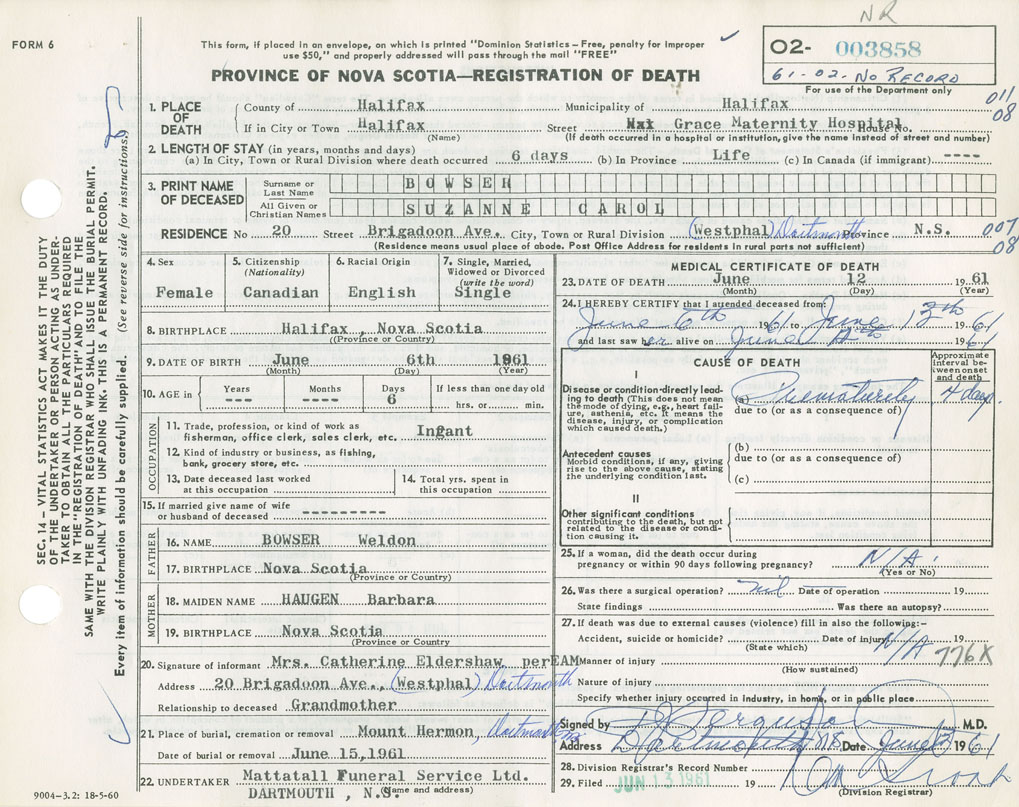 NR
FORM 6
This form, if placed in an envelope, on which is printed "Dominion Statistics – Free, penalty for improper
use $50," and properly addressed will pass through the mail "FREE"
PROVINCE OF NOVA SCOTIA—REGISTRATION OF DEATH
02- 003858
61-02-No RECORD
For use of the Department only
011
08
1. PLACE OF DEATH
County of Halifax Municipality of Halifax
If in City or Town Halifax Street Grace Maternity Hospital House No.
(Name) (If death occurred in a hospital or institution, give the name instead of street and number)
2. LENGTH OF STAY (in years, months and days)
(a) In City, Town or Rural Division where death occurred 6 days (b) In Province Life (c) In Canada (if immigrant) ----
3. PRINT NAME OF DECEASED
Surname or Last Name BOWSER
All Given or Christian Names SUZANNE CAROL
RESIDENCE No 20 Street Brigadoon Ave. City, Town or Rural Division (Westphal) Dartmouth Province N.S.
007
08
(Residence means usual place of abode. Post Office Address for residents in rural parts not sufficient)
4. Sex Female
5. Citizenship (Nationality) Canadian
6. Racial Origin English
7. Single, Married, Widowed or Divorced (write the word) Single
8. BIRTHPLACE Halifax, Nova Scotia
((Province or Country)
9. DATE OF BIRTH June 6th 1961
(Month) (Day) (Year)
10. AGE in Years --- Months --- Days 6 If less than one day old hrs. or min.
OCCUPATION
11. Trade, profession, or kind of work as
fisherman, office clerk, sales clerk, etc. Infant
12. Kind of industry or business, as fishing,
bank, grocery store, etc.
13. Date deceased last worked
at this occupation
14. Total yrs. spent in
this occupation
15. If married give name of wife
or husband of deceased ---------
FATHER
16. NAME BOWSER Weldon
17. BIRTHPLACE Nova Scotia
(Province or Country)
MOTHER
18. MAIDEN NAME HAUGEN Barbara
19. BIRTHPLACE Nova Scotia
(Province or Country
20. Signature of informant Mrs. Catherine Eldershaw, perEAM
Address 20 Brigadoon Ave., (Westphal) Dartmouth
Relationship to deceased Grandmother
21. Place of burial, cremation or removal Mount Hermon, Dartmouth
Date of burial or removal June 15,1961
22. UNDERTAKER Mattatall Funeral Service Ltd.
DARTMOUTH , N.S. (Name and address)
MEDICAL CERTIFICATE OF DEATH
23. DATE OF DEATH June 12 1961
(Month) (Day) (Year)
24. I HEREBY CERTIFY that I attended deceased from:
June 6th 1961 to June 12th 1961
and last saw her alive on June 1961
CAUSE OF DEATH
Approximate interval between onset and death
I
Disease or condition directly leading to death (This does not mean the mode of dying, e.g., heart failure, asthenia, etc. It means the disease, injury, or complication which caused death.)
(a) Prematurely 4 days
due to (or as a consequence of)
Antecedent causes
Morbid conditions, if any, giving rise to the above cause, stating the underlying condition last.
(b)
due to (or as a consequence of)
(c)
II
Other significant conditions
contributing to the death, but not related to the disease or condition causing it.
25. If a woman, did the death occur during
pregnancy or within 90 days following pregnancy? N/A
(Yes or No)
26. Was there a surgical operation? nil Date of operation 19
State findings Was there an autopsy?
27. If death was due to external causes (violence) fill in also the following:-
Accident, suicide or homicide? Date of injury N/A 19
(State which)
776X
Manner of injury
(How sustained)
Nature of injury
Specify whether injury occurred in industry, in home, or in public place
Signed by Ferguson M.D.
Address Dartmouth NS Date June 13 1961
28. Division Registrar's Record Number
29. Filed JUN 13 1961 19
(Division Registrar)
SEC. 14 – VITAL STATISTICS ACT MAKES IT THE DUTY
OF THE UNDERTAKER OR PERSON ACTING AS UNDER-
TAKER TO OBTAIN ALL THE PARTICULARS REQUIRED
IN THE "REGISTRATION OF DEATH" AND TO FILE THE
SAME WITH THE DIVISION REGISTRAR WHO SHALL ISSUE THE BURIAL PERMIT.
WRITE PLAINLY WITH UNFADING INK. THIS IS A PERMANENT RECORD.
Every item of information should be carefully supplied. (See reverse side for instructions).
9004-3.2: 18-5-60